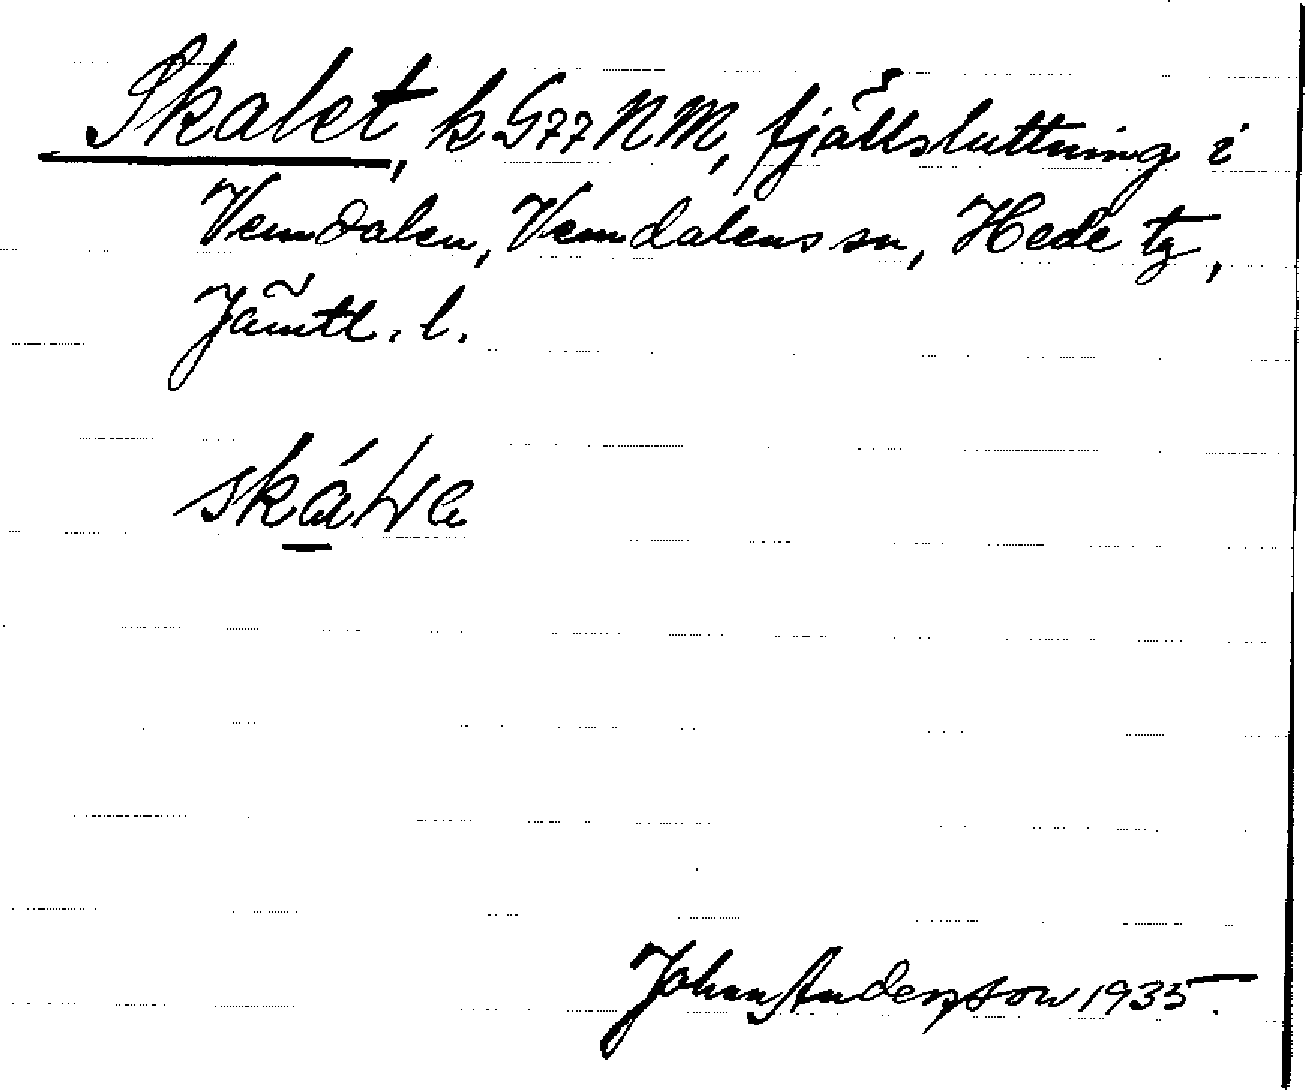 Skalet, k G77 NM, fjällsluttning i
Vemdalen, Vemdalens sn, Hede tg,
Jämtl. l.
John Andersson 1935.